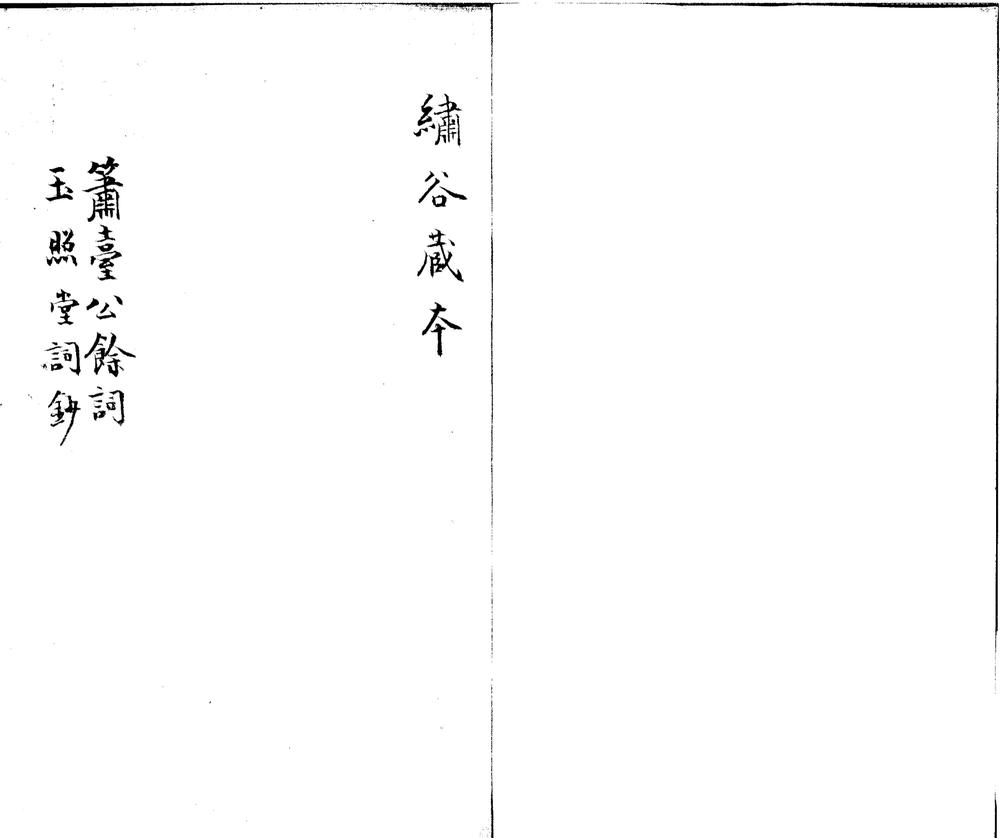 繡谷蔵本
簫臺公餘詞
玉照堂詞鈔